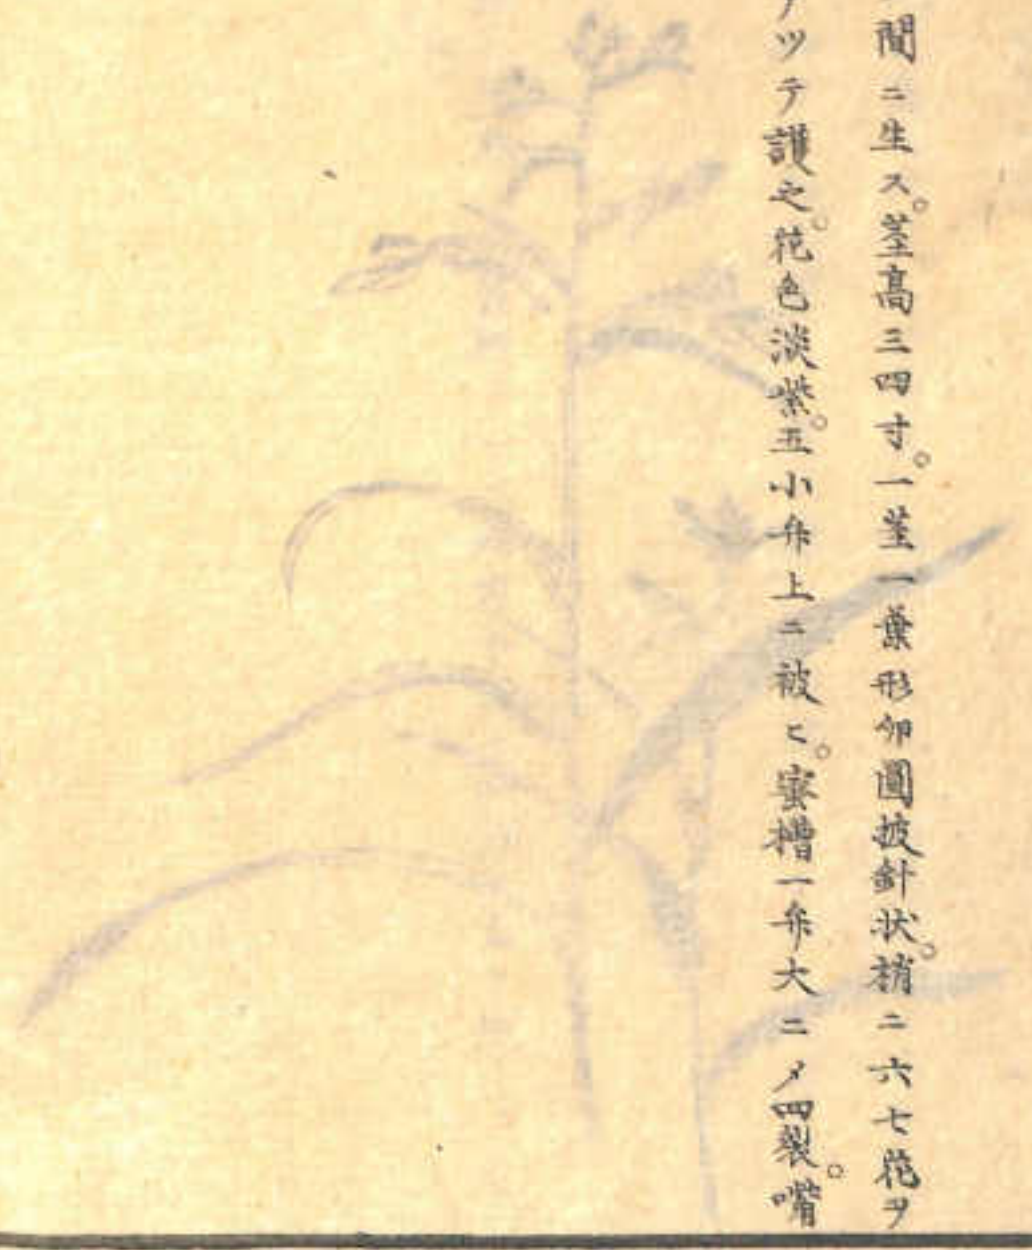 間ニ生ス。莖高三四寸。一莖一葉形卵圓披針状。梢ニ六七花ヲ
ツテ護之。花色淡紫。五小弁上ニ被ヒ。蜜槽一弁大ニ〆四裂。嘴